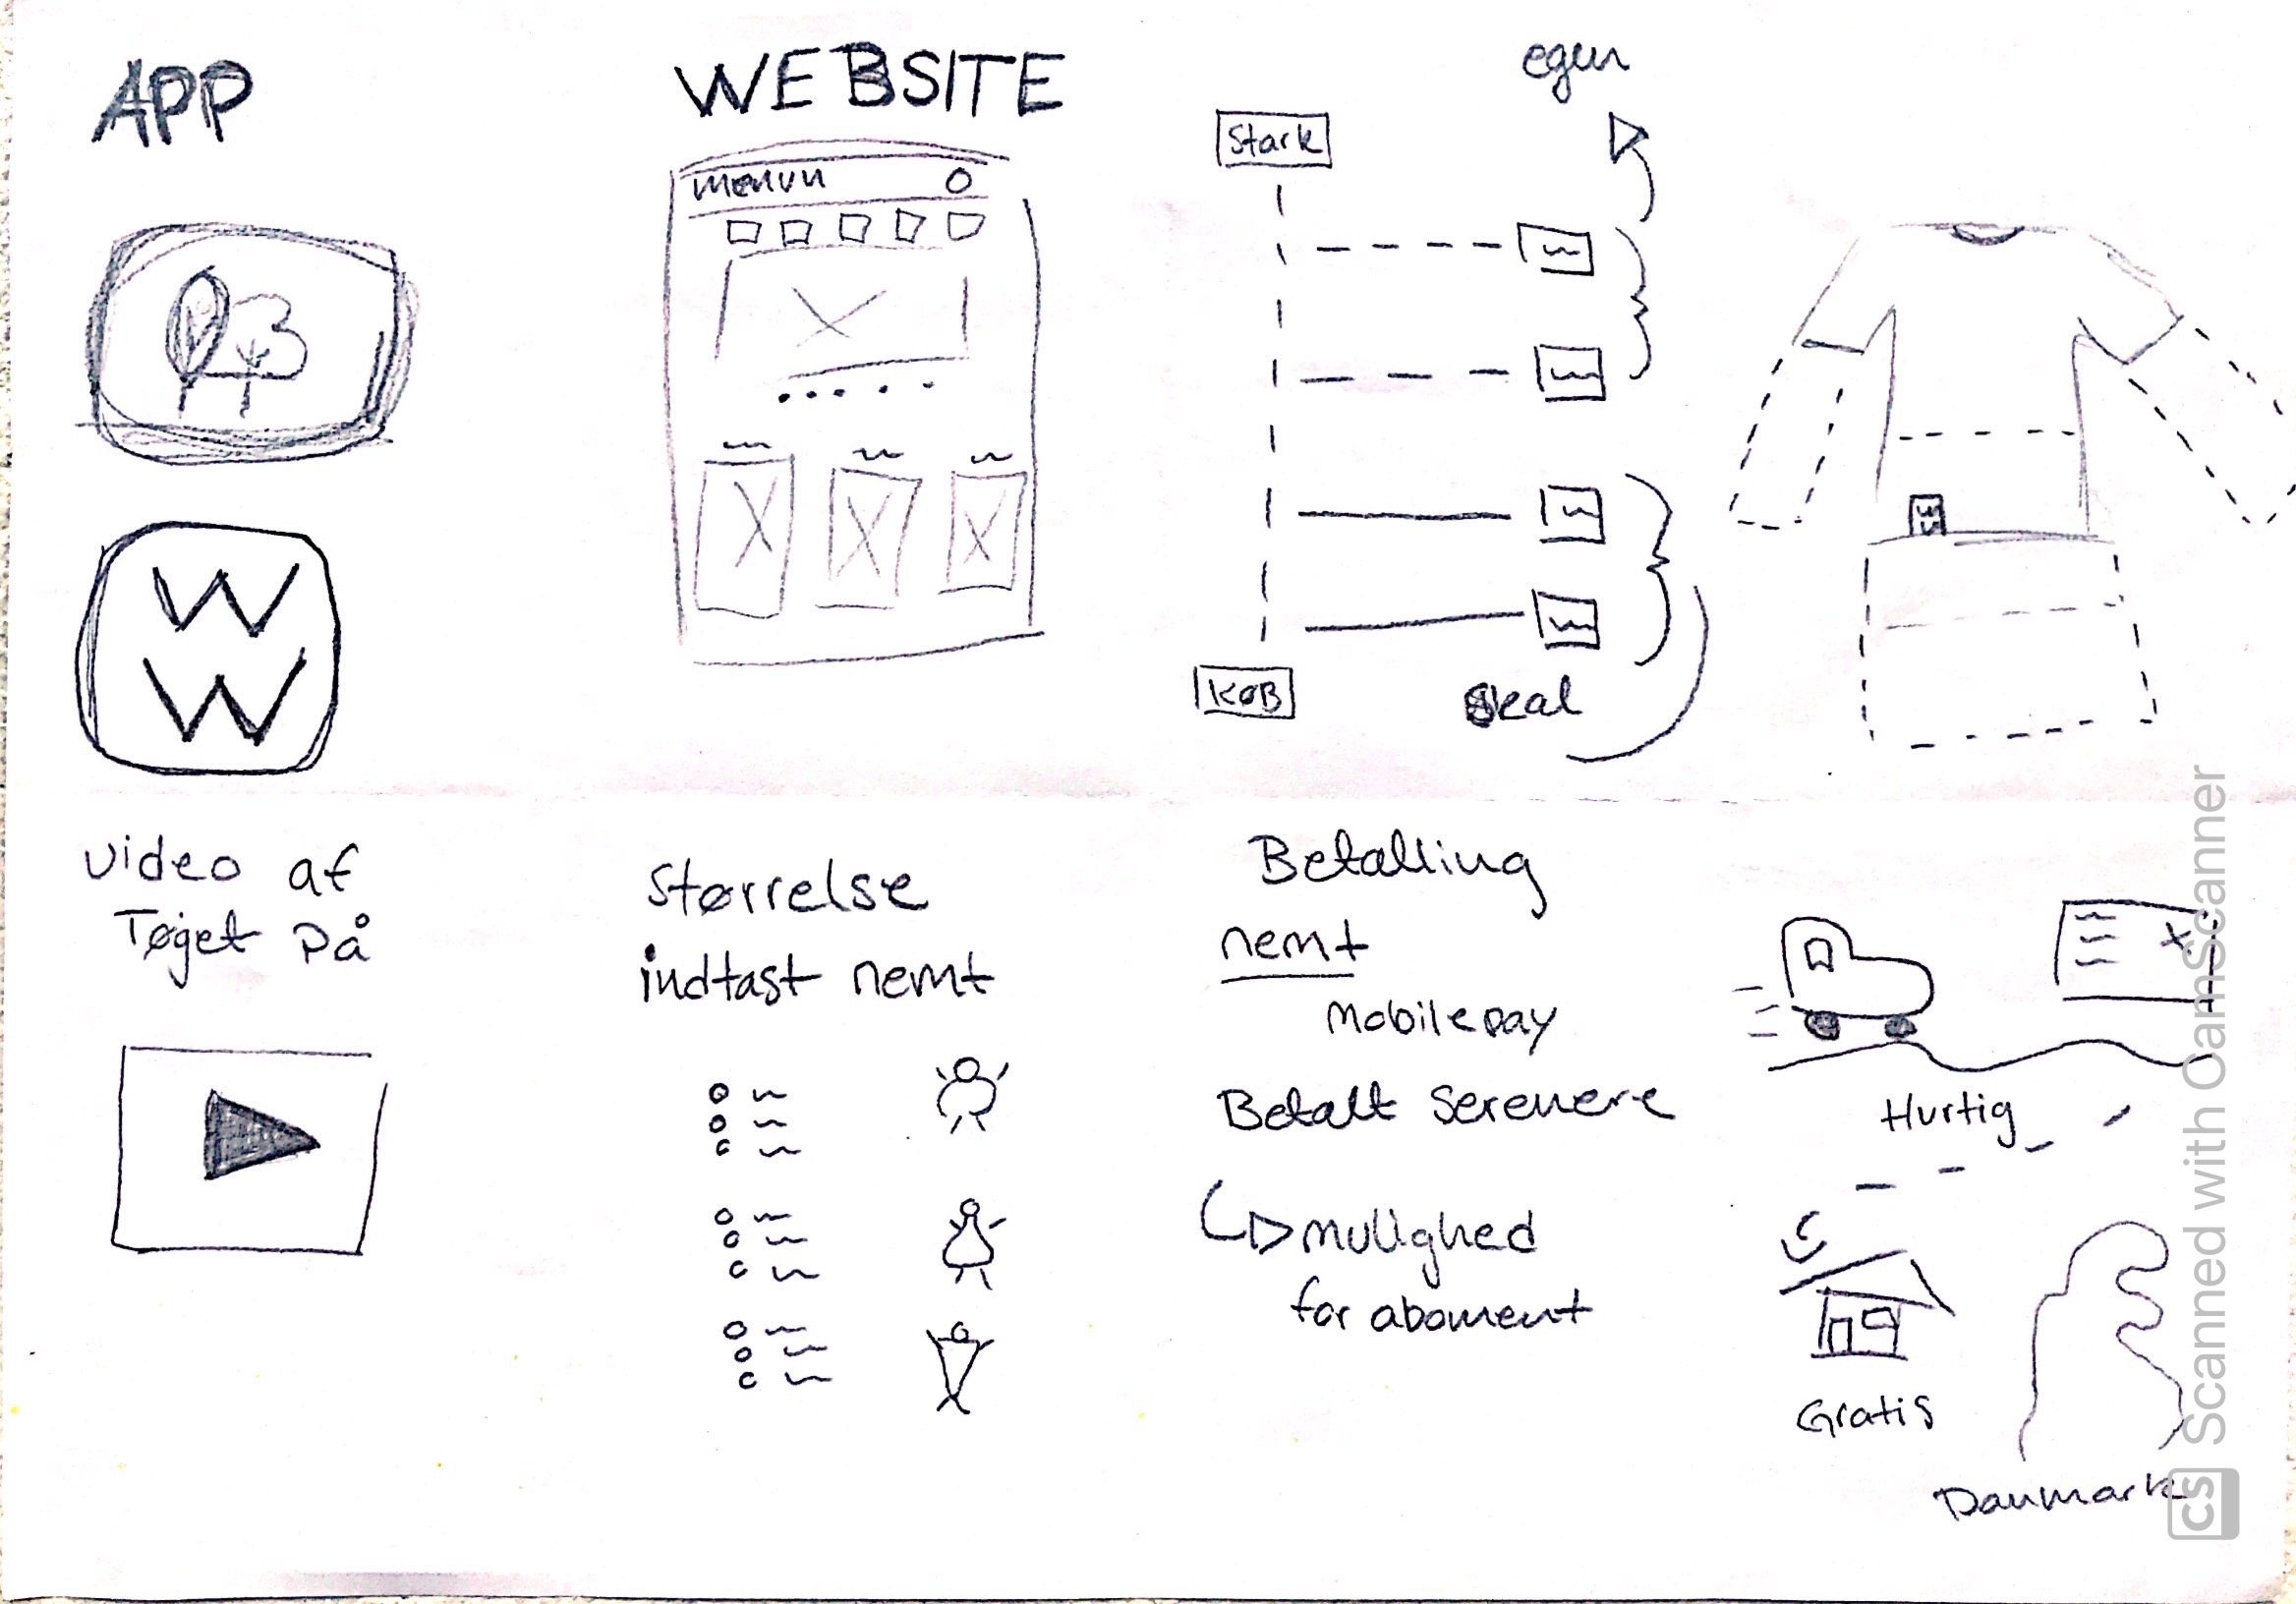 APP
W
W
WEBSITE
menuu
Stark
egen
KØB
skal
W
W
video af
Tøjet På
størrelse
indtast nemt
Betalling
nemt
Mobilepay
Betalt serenere
mulighed
for aboment
Hurtig
Gratis
Danmark
CS Scanned with CamScanner